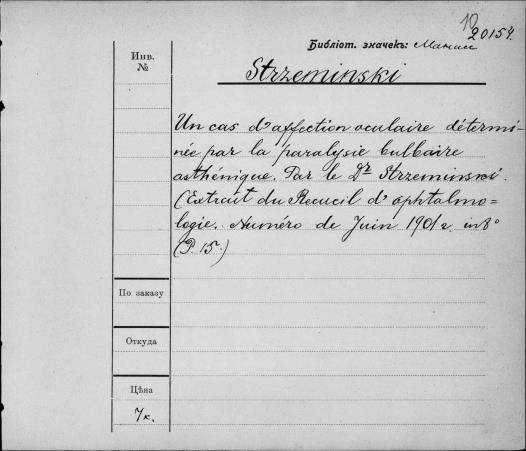 10
20154.
Библіот. значекъ:
Инв.
№
Strzeminski
Un cas d'affection oculaire détermi-
née par la paralysie bulbaire
asthénique. Par le Dr Strzeminski.
(Extrait du Recueil d'ophtalmo=
logie. Numéro de Juin 1901 г. in 8°
(P. 15.)
По заказу
Откуда
Цѣна
7к.